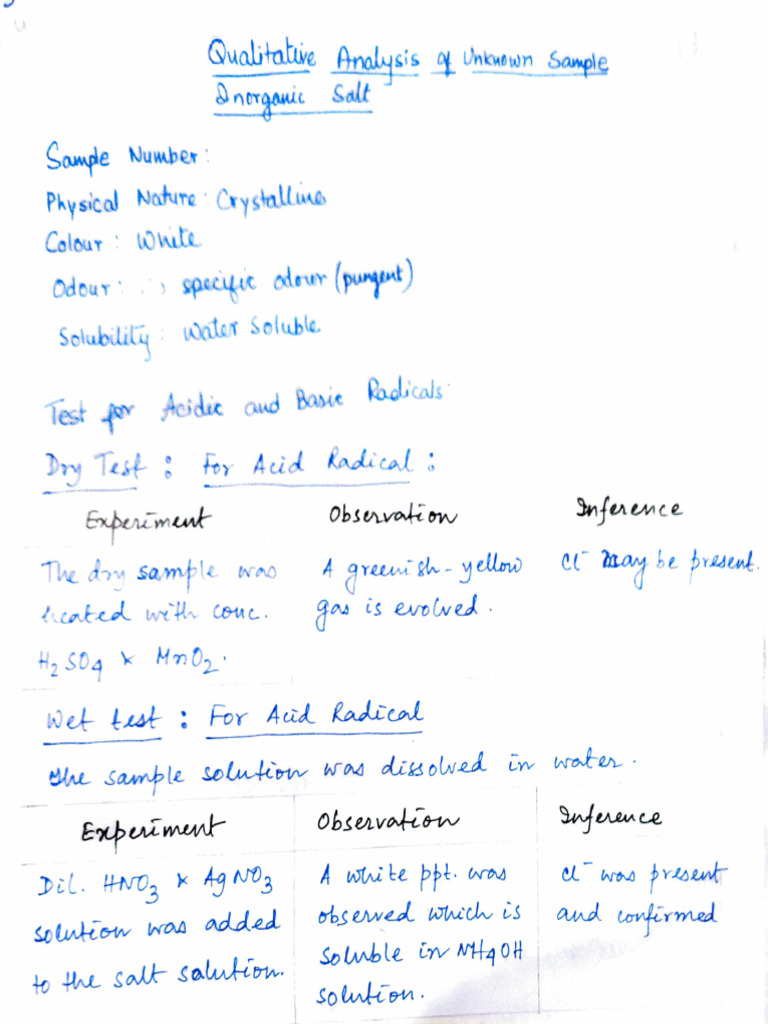 Qualitative Analysis of Unknown Sample
Inorganic Salt
Sample Number:
Physical Nature: Crystalline
Colour: White
Odour: specific odour (pungent)
Solubility: Water Soluble
Test for Acidic and Basic Radicals:
Dry Test: For Acid Radical:
Experiment Observation Inference
The dry sample was A greenish-yellow Cl⁻ may be present.
heated with conc. gas is evolved.
H₂SO₄ & MnO₂.
Wet test: For Acid Radical
The sample solution was dissolved in water.
Experiment Observation Inference
Dil. HNO₃ & AgNO₃ A white ppt. was Cl⁻ was present
solution was added observed which is and confirmed
to the salt solution. soluble in NH4OH
solution.